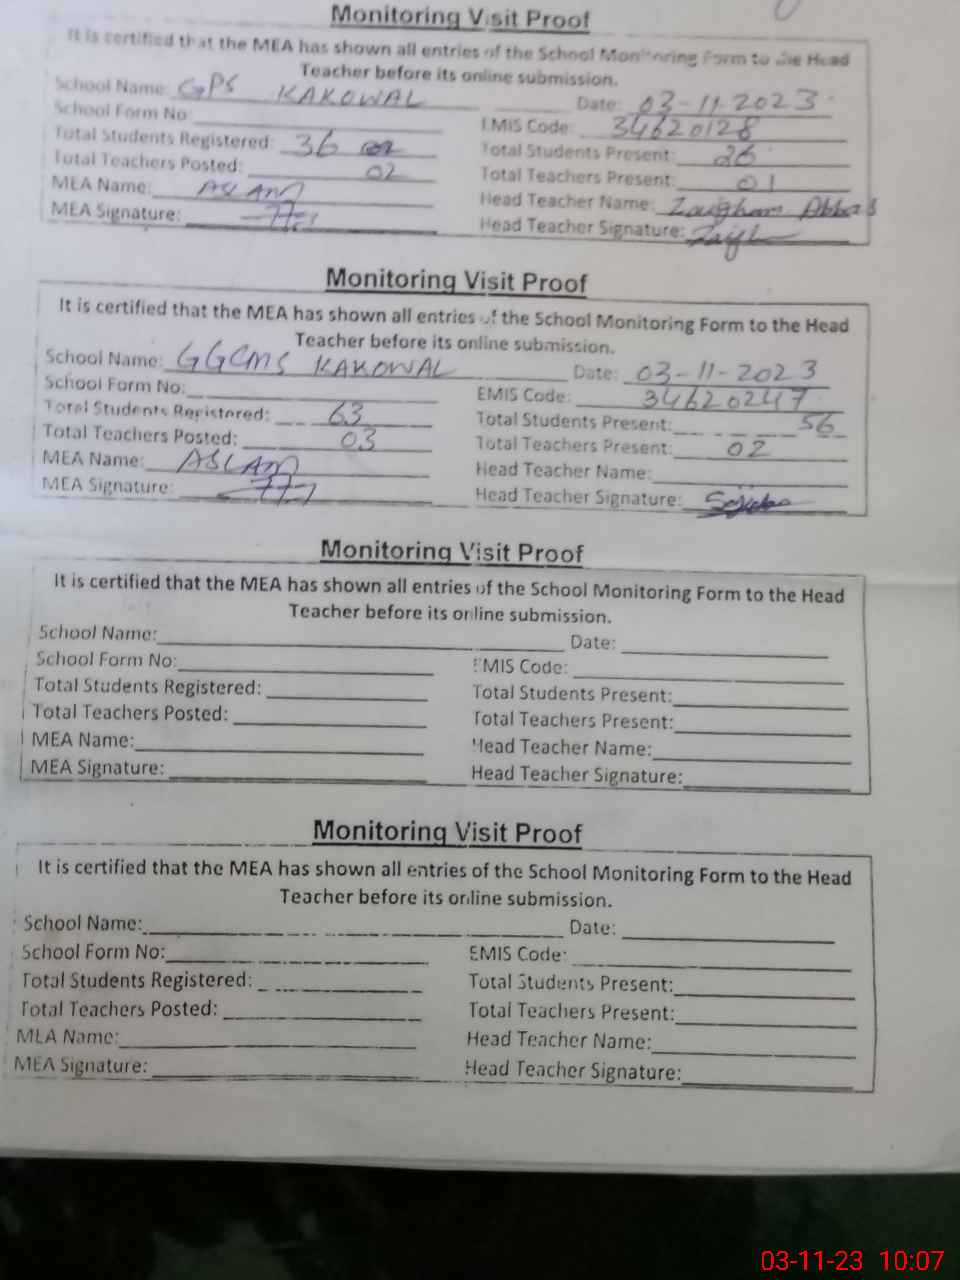 Monitoring Visit Proof
It is certified that the MEA has shown all entries of the School Monitoring Form to the Head
Teacher before its online submission.
School Name: GPS KAKOWAL Date: 03-11-2023
School Form No: EMIS Code: 34620128
Total Students Registered: 36 Total Students Present: 26
Total Teachers Posted: 02 Total Teachers Present: 01
MEA Name: ASLAM Head Teacher Name: Zaugham Abbas
MEA Signature: Head Teacher Signature:
Monitoring Visit Proof
It is certified that the MEA has shown all entries of the School Monitoring Form to the Head
Teacher before its online submission.
School Name: GGCMS KAKOWAL Date: 03-11-2023
School Form No: EMIS Code: 34620247
Total Students Registered: 63 Total Students Present: 56
Total Teachers Posted: 03 Total Teachers Present: 02
MEA Name: ASLAM Head Teacher Name:
MEA Signature: Head Teacher Signature:
Monitoring Visit Proof
It is certified that the MEA has shown all entries of the School Monitoring Form to the Head
Teacher before its online submission.
School Name: Date:
School Form No: EMIS Code:
Total Students Registered: Total Students Present:
Total Teachers Posted: Total Teachers Present:
MEA Name: Head Teacher Name:
MEA Signature: Head Teacher Signature:
Monitoring Visit Proof
It is certified that the MEA has shown all entries of the School Monitoring Form to the Head
Teacher before its online submission.
School Name: Date:
School Form No: EMIS Code:
Total Students Registered: Total Students Present:
Total Teachers Posted: Total Teachers Present:
MEA Name: Head Teacher Name:
MEA Signature: Head Teacher Signature:
03-11-23 10:07